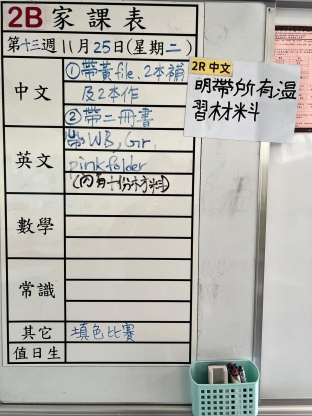 2B 家課表
第十三週 11月25日(星期二)
中文
①帶黃file, 2本補
及2本作
②帶二冊書
英文
帶WB, Gr,
pink folder
(內有十份材料)
數學
常識
其它 填色比賽
值日生
2R 中文
明帶所有溫
習材料